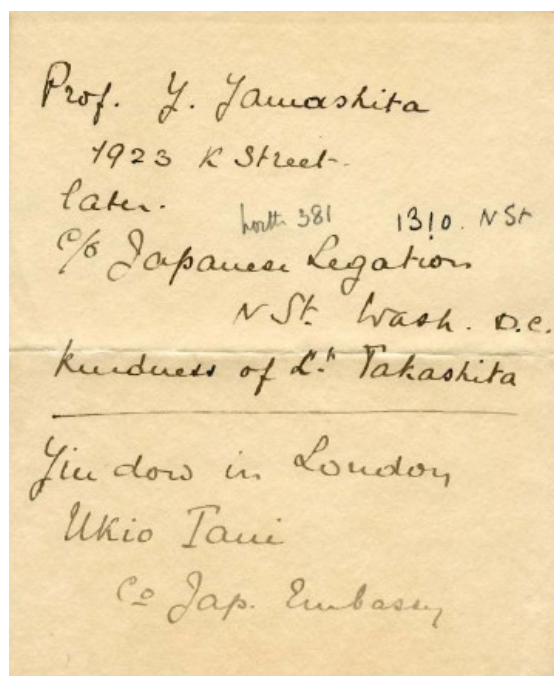 Prof. Y. Yamashita
1923 K Street.
later.
North 381 1310. N St
c/o Japanese Legation
N St. Wash. D.C.
kindness of Lt. Takashita
Jiu dow in London
Ukio Tani
Co Jap. Embassy